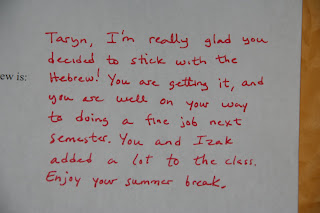 Taryn, I'm really glad you
decided to stick with the
Hebrew! You are getting it, and
ew is:
you are well on your way
to doing a fine job next
semester. You and Izak
added a lot to the class.
Enjoy your summer break.